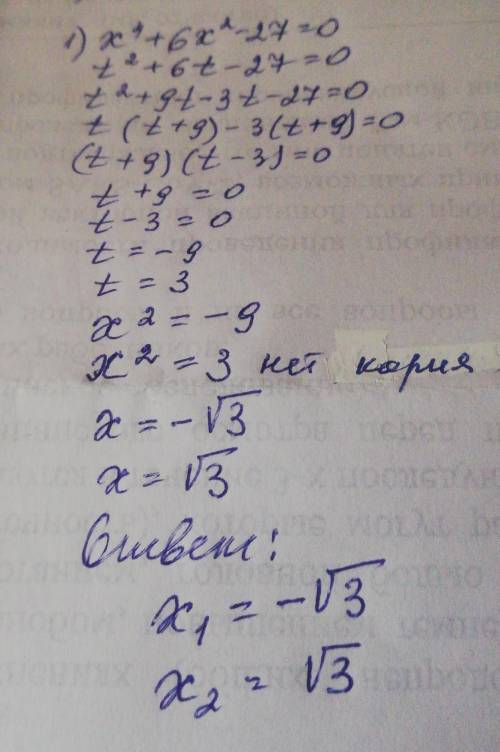 1) x⁴+6x²-27=0
t²+6t-27=0
t²+9t-3t-27=0
t(t+9)-3(t+9)=0
(t+9)(t-3)=0
t+9=0
t-3=0
t=-9
t=3
x²=-9
x²=3 нет корня
x=-√3
x=√3
Ответ:
x₁=-√3
x₂=√3